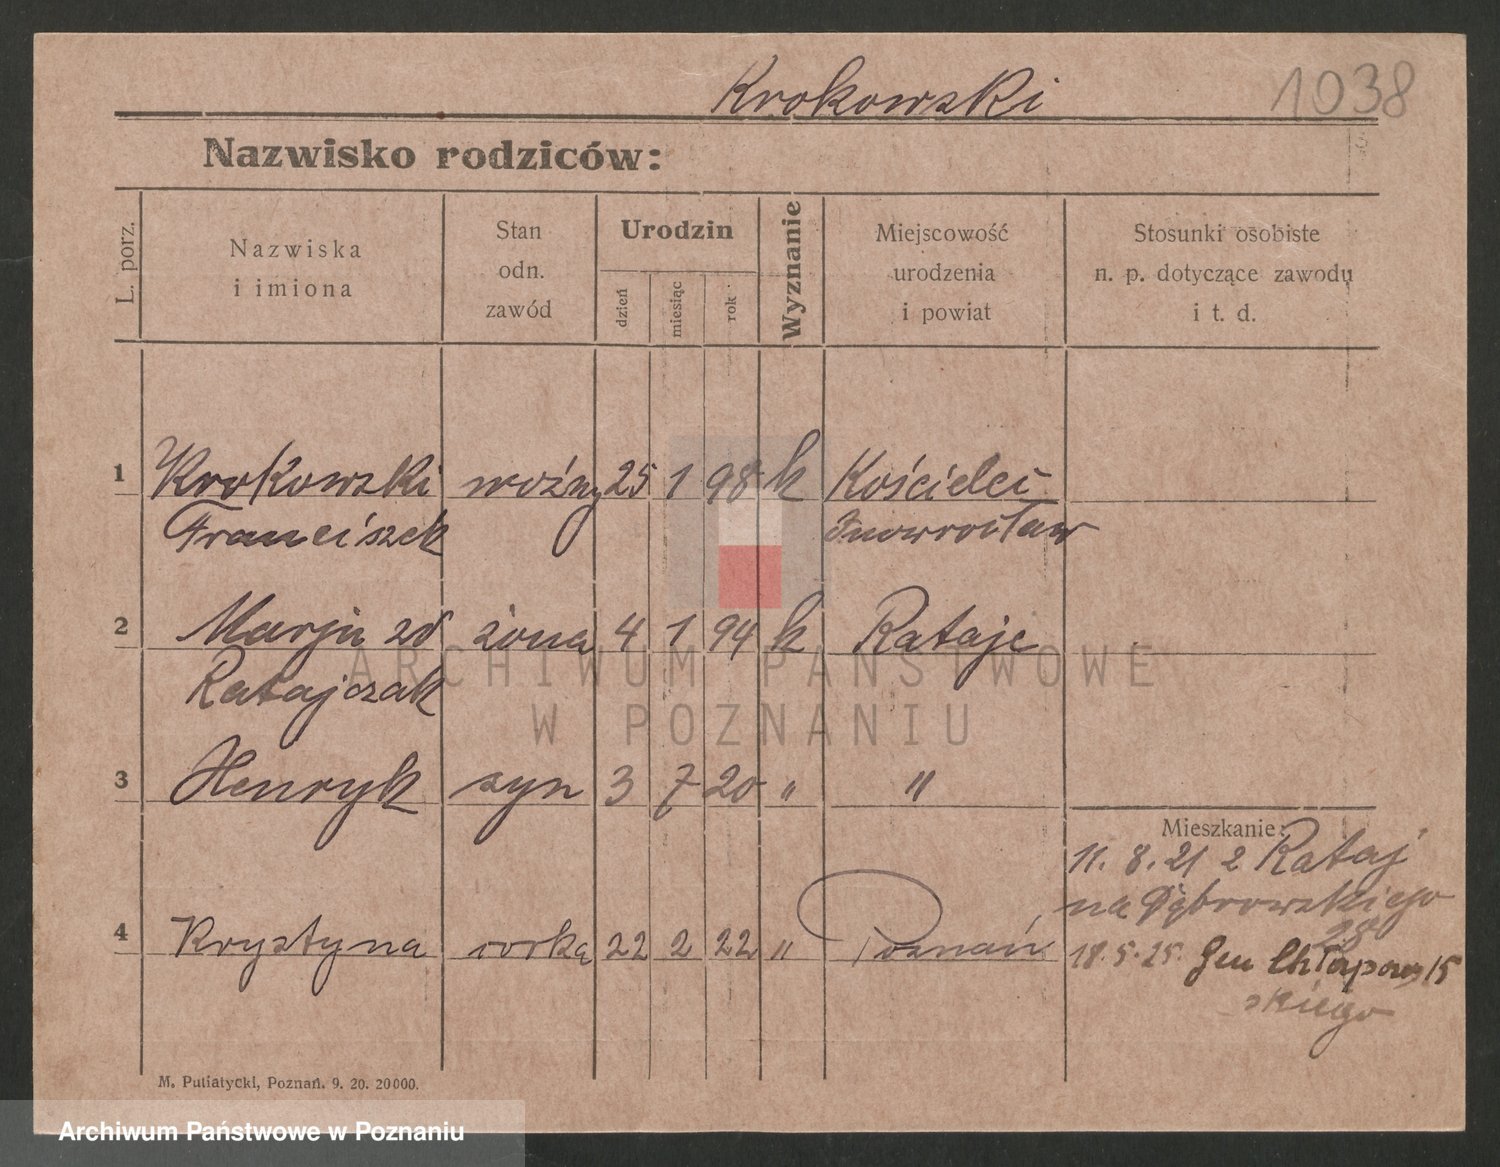 Krokowski
1038
Nazwisko rodziców:
L. porz.
Nazwiska
i imiona
Stan
odn.
zawód
Urodzin
dzień
miesiąc
rok
Wyznanie
Miejscowość
urodzenia
i powiat
Stosunki osobiste
n. p. dotyczące zawodu
i t. d.
1 Krokowski woźny 25 1 98 k Kościelec
Franciszek Inowrocław
2 Marja zd żona 4 1 94 k Rataje
Ratajczak
3 Henryk syn 3 7 20 " "
4 Krystyna corka 22 2 22 " Poznań
Mieszkanie:
11. 8. 21 z Rataj
na Dąbrowskiego
28
18. 5. 25. Gen Chłapow 15
skiego
M. Putiatycki, Poznań. 9. 20. 20000.
ARCHIWUM PAŃSTWOWE
W POZNANIU
Archiwum Państwowe w Poznaniu